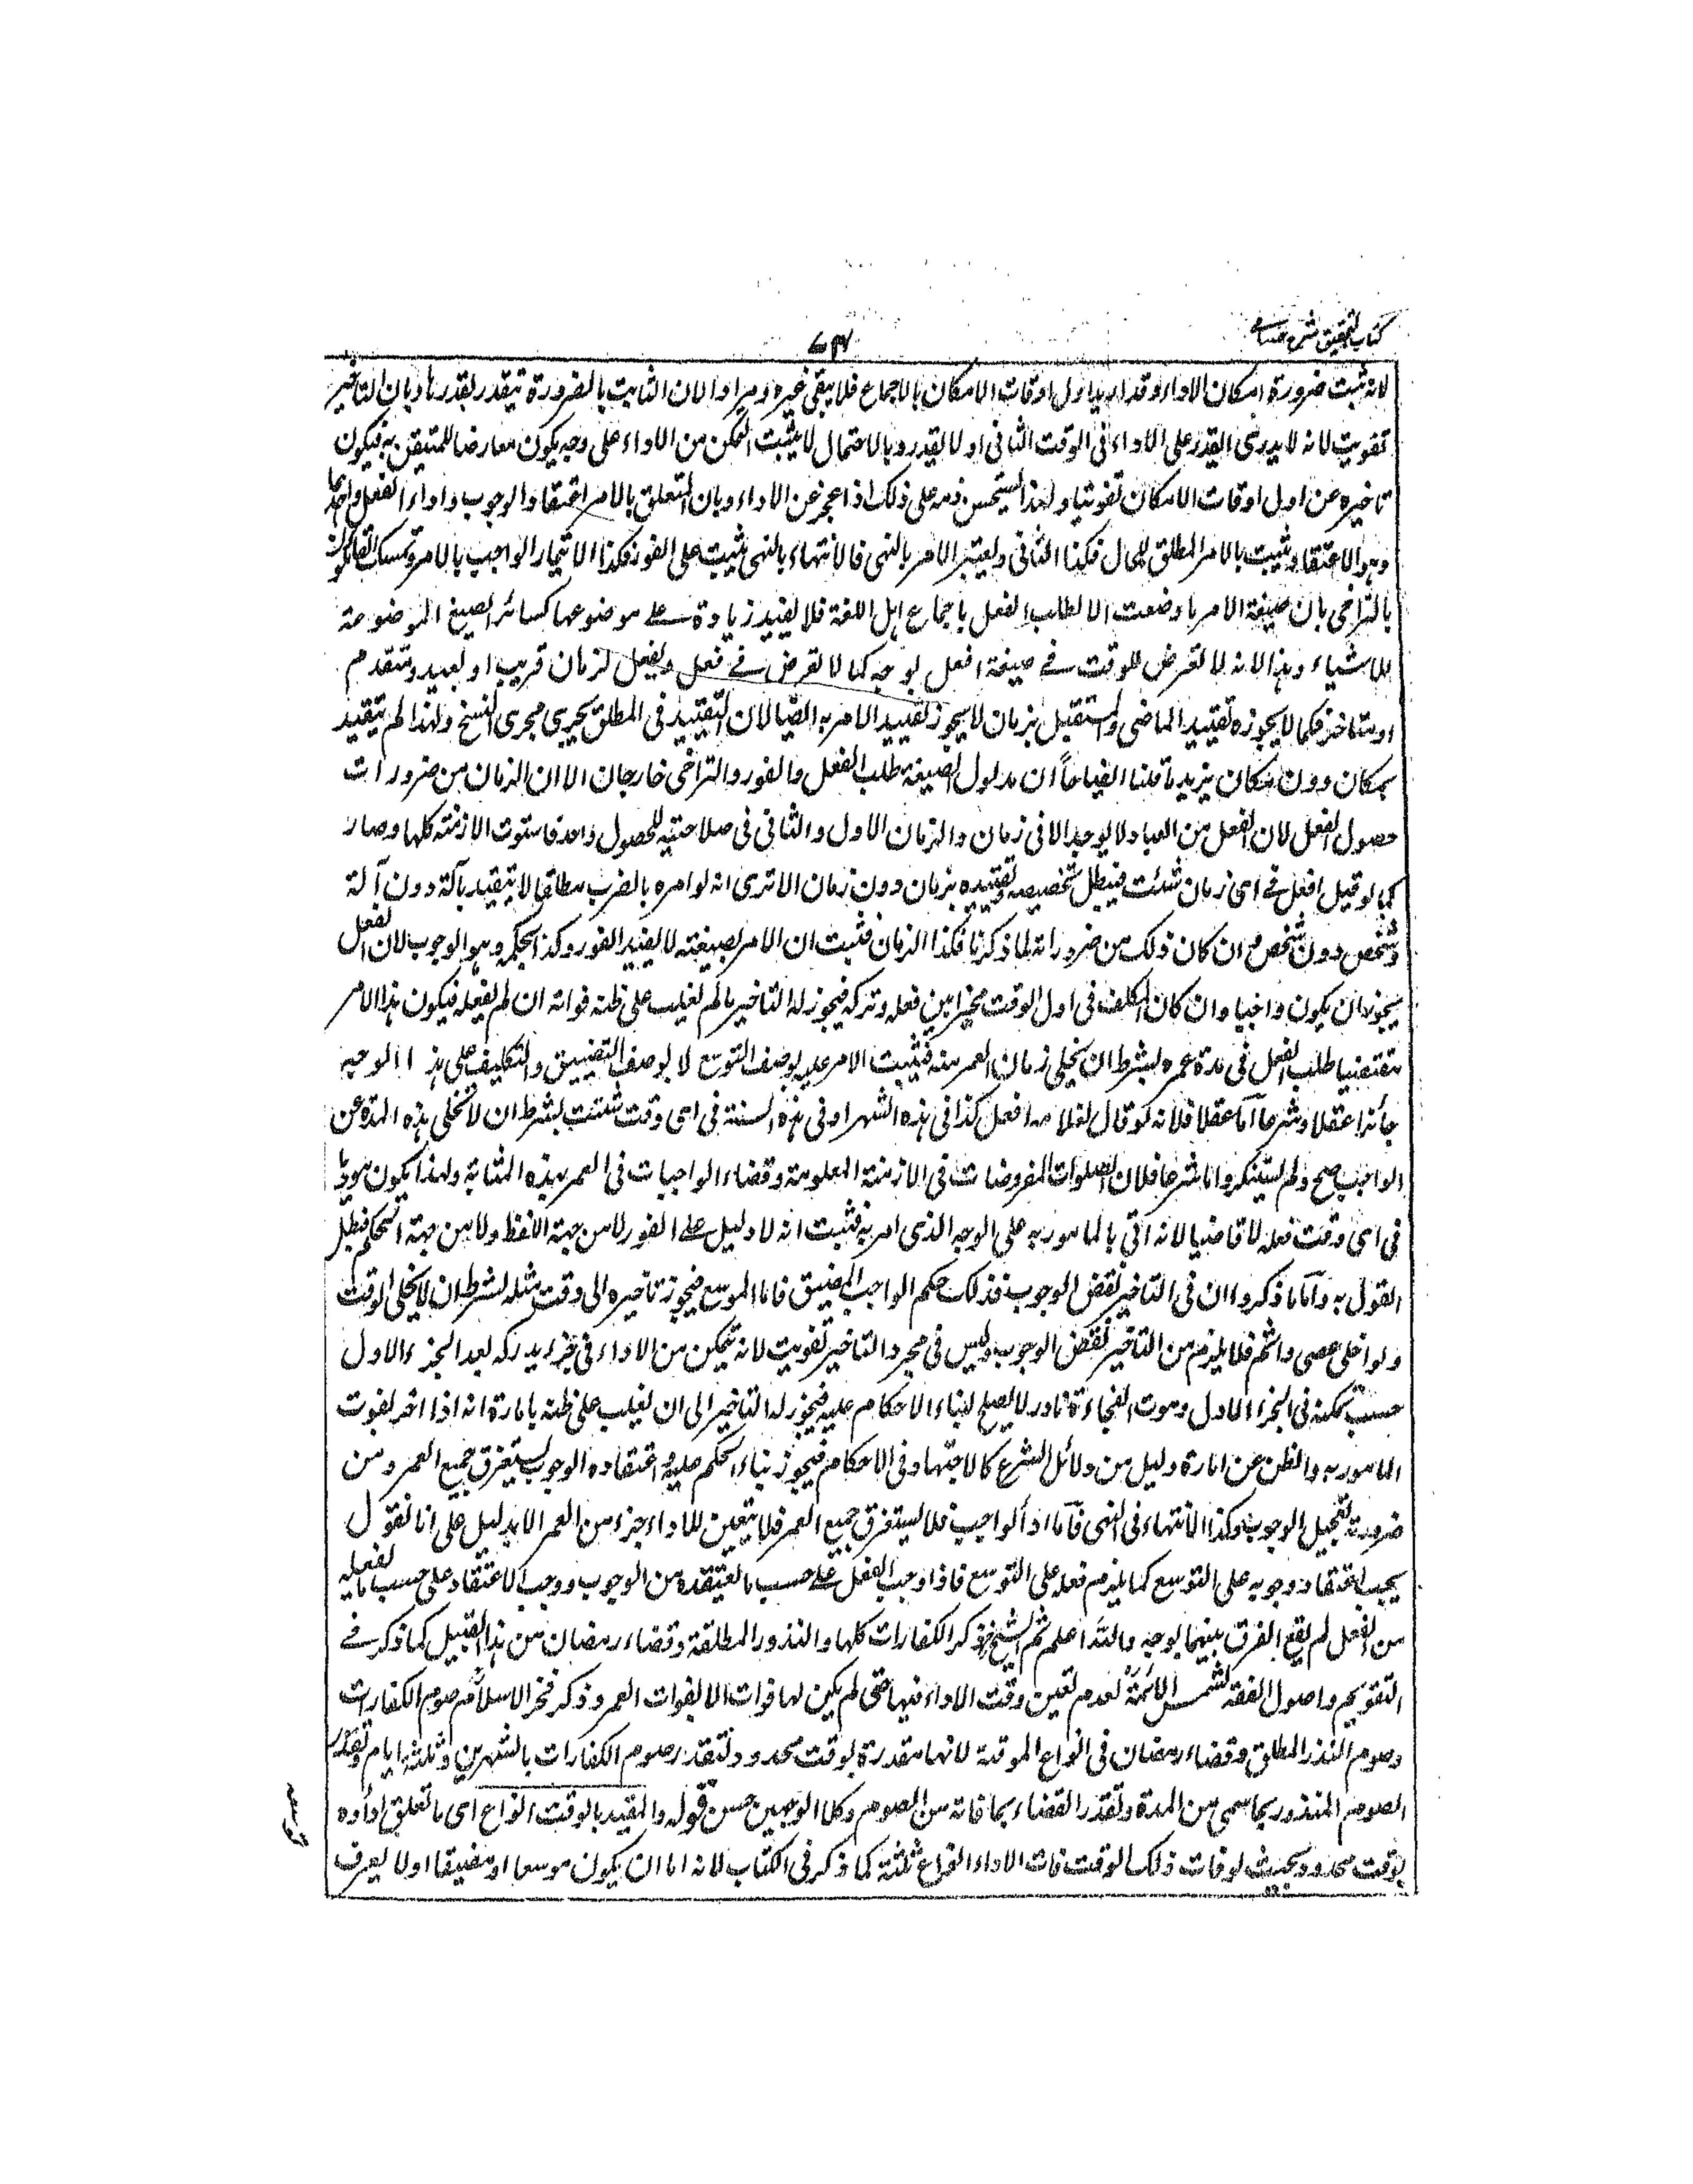 كتاب التحقيق شرح حسامى
٧٣
لانه ثبت ضرورة امكان الاداء وقد اريد اول اوقات الامكان بالاجماع فلا يبقى غيره مرادا لان الثابت بالضرورة يتقدر بقدرها وبان التاخير
تفويت لانه لا يدرى القدر على الاداء فى الوقت الثانى او لا يقدر وبالاحتمال لا يثبت التمكن من الاداء على وجه يكون معارضا للمتيقن به فيكون
تاخيره عن اول اوقات الامكان تفويتا ولهذا يستحسن ذمه على ذلك اذا عجز عن الاداء وبان المتعلق بالامر اعتقاد الوجوب واداء الفعل واحدهما
وهو الاعتقاد يثبت بالامر المطلق للحال فكذا الثانى ويعتبر الامر بالنهى فالانتهاء بالنهى يثبت على الفور فكذا الايتمار الواجب بالامر وتمسك القائلون
بالتراخى بان صيغة الامر ما وضعت الا لطلب الفعل باجماع اهل اللغة فلا يفيد زيادة على موضوعها كسائر الصيغ الموضوعة
للاشياء وهذا لانه لا تعرض للوقت فى صيغة افعل بوجه كما لا تعرض فى فعل ويفعل لزمان قريب او بعيد ومتقدم
او متاخر فكما لا يجوز تقييد الماضى والمستقبل بزمان لا يجوز تقييد الامر به ايضا لان التقييد فى المطلق يجرى مجرى النسخ ولهذا لم يتقيد
بمكان دون مكان يزيد ما قلنا ايضاحا ان مدلول الصيغة طلب الفعل والفور والتراخى خارجان الا ان الزمان من ضرورات
حصول الفعل لان الفعل من العباد لا يوجد الا فى زمان والزمان الاول والثانى فى صلاحيته للحصول واحد فاستوت الازمنة كلها وصار
كما لو قيل افعل فى اى زمان شئت فيبطل تخصيصه وتقييده بزمان دون زمان الا ترى انه لو امره بالضرب مطلقا لا يتقيد بآلة دون آلة
وشخص دون شخص وان كان ذلك من ضروراته لما ذكرنا فكذا الزمان فثبت ان الامر بصيغته لا يفيد الفور وكذا بحكمه وهو الوجوب لان الفعل
يجوز ان يكون واجبا وان كان المكلف فى اول الوقت مخيرا بين فعله وتركه فيجوز له التاخير ما لم يغلب على ظنه فواته ان لم يفعله فيكون هذا الامر
مقتضيا طلب الفعل فى مدة عمره بشرط ان لا يخلى زمان العمر منه فيثبت الامر عليه بوصف التوسع لا بوصف التضييق والتكليف على هذا الوجه
جائز عقلا وشرعا اما عقلا فلانه لو قال لغلامه افعل كذا فى هذه الشهر او فى هذه السنة فى اى وقت شئت بشرط ان لا تخلى هذه المدة عن
الواجب صح ولم يستنكر واما شرعا فلان الصلوات المفروضات فى الازمنة المعلومة وقضاء الواجبات فى العمر بهذه المثابة ولهذا يكون مؤديا
فى اى وقت فعله لا قاضيا لانه اتى بالمامور به على الوجه الذى امر به فثبت انه لا دليل على الفور لا من جهة اللفظ ولا من جهة الحكم فبطل
القول به واما ما ذكروا ان فى التاخير نقض الوجوب فذلك حكم الواجب المضيق فاما الموسع فيجوز تاخيره الى وقت مثله بشرط ان لا يخلى الوقت
ولو اخلى عصى واثم فلا يلزم من التاخير نقض الوجوب وليس فى مجرد التاخير تفويت لانه يتمكن من الاداء فى جزء يدركه بعد الجزء الاول
حسب تمكنه فى الجزء الاول وموت الفجاءة نادر لا يصلح لبناء الاحكام عليه فيجوز له التاخير الى ان يغلب على ظنه بامارة انه اذا اخر يفوت
المامور به والظن عن امارة دليل من دلائل الشرع كالاجتهاد فى الاحكام فيجوز بناء الحكم عليه واعتقاده الوجوب يستغرق جميع العمر ومن
ضرورته تعجيل الوجوب وكذا الانتهاء فى النهى فاما اداء الواجب فلا يستغرق جميع العمر فلا يتعين للاداء جزء من العمر الا بدليل على انا نقول
يجب اعتقاد وجوبه على التوسع كما يلزم فعله على التوسع فاذا وجب الفعل على حسب ما يعتقده من الوجوب ووجب الاعتقاد على حسب ما يفعله
من الفعل لم يقع الفرق بينهما بوجه والله اعلم ثم الشيخ ذكر الكفارات كلها والنذور المطلقة وقضاء رمضان من هذا القبيل كما ذكر فى
التقويم واصول الفقه لشمس الائمة لعدم تعين وقت الاداء فيها حتى لم يكن لها فوات الا بفوات العمر وذكر فخر الاسلام صوم الكفارات
وصوم النذر المطلق وقضاء رمضان فى انواع الموقتة لانها مقدرة بوقت محدود لتقدر صوم الكفارات بالشهرين وثلثة ايام وتقدر
الصوم المنذور بما سمى من المدة وتقدر القضاء بما فاته من الصوم وكلا الوجهين حسن قوله والمقيد بالوقت انواع اى ما تعلق اداؤه
بوقت محدود بحيث لو فات ذلك الوقت فات الاداء انواع ثلثة كما ذكر فى الكتاب لانه اما ان يكون موسعا او مضيقا او لا يعرف
توسعه